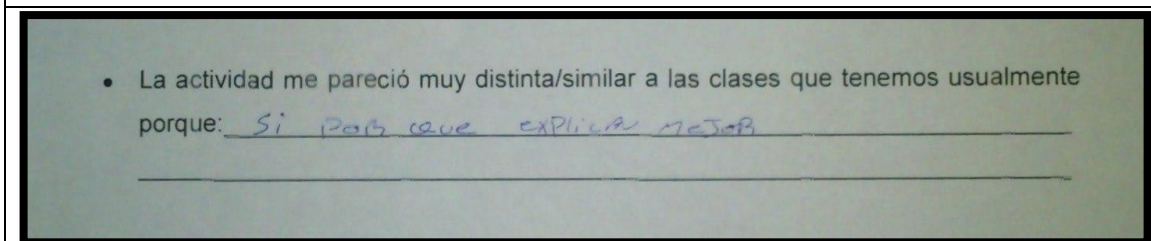 • La actividad me pareció muy distinta/similar a las clases que tenemos usualmente
porque: Si por que explica mejor